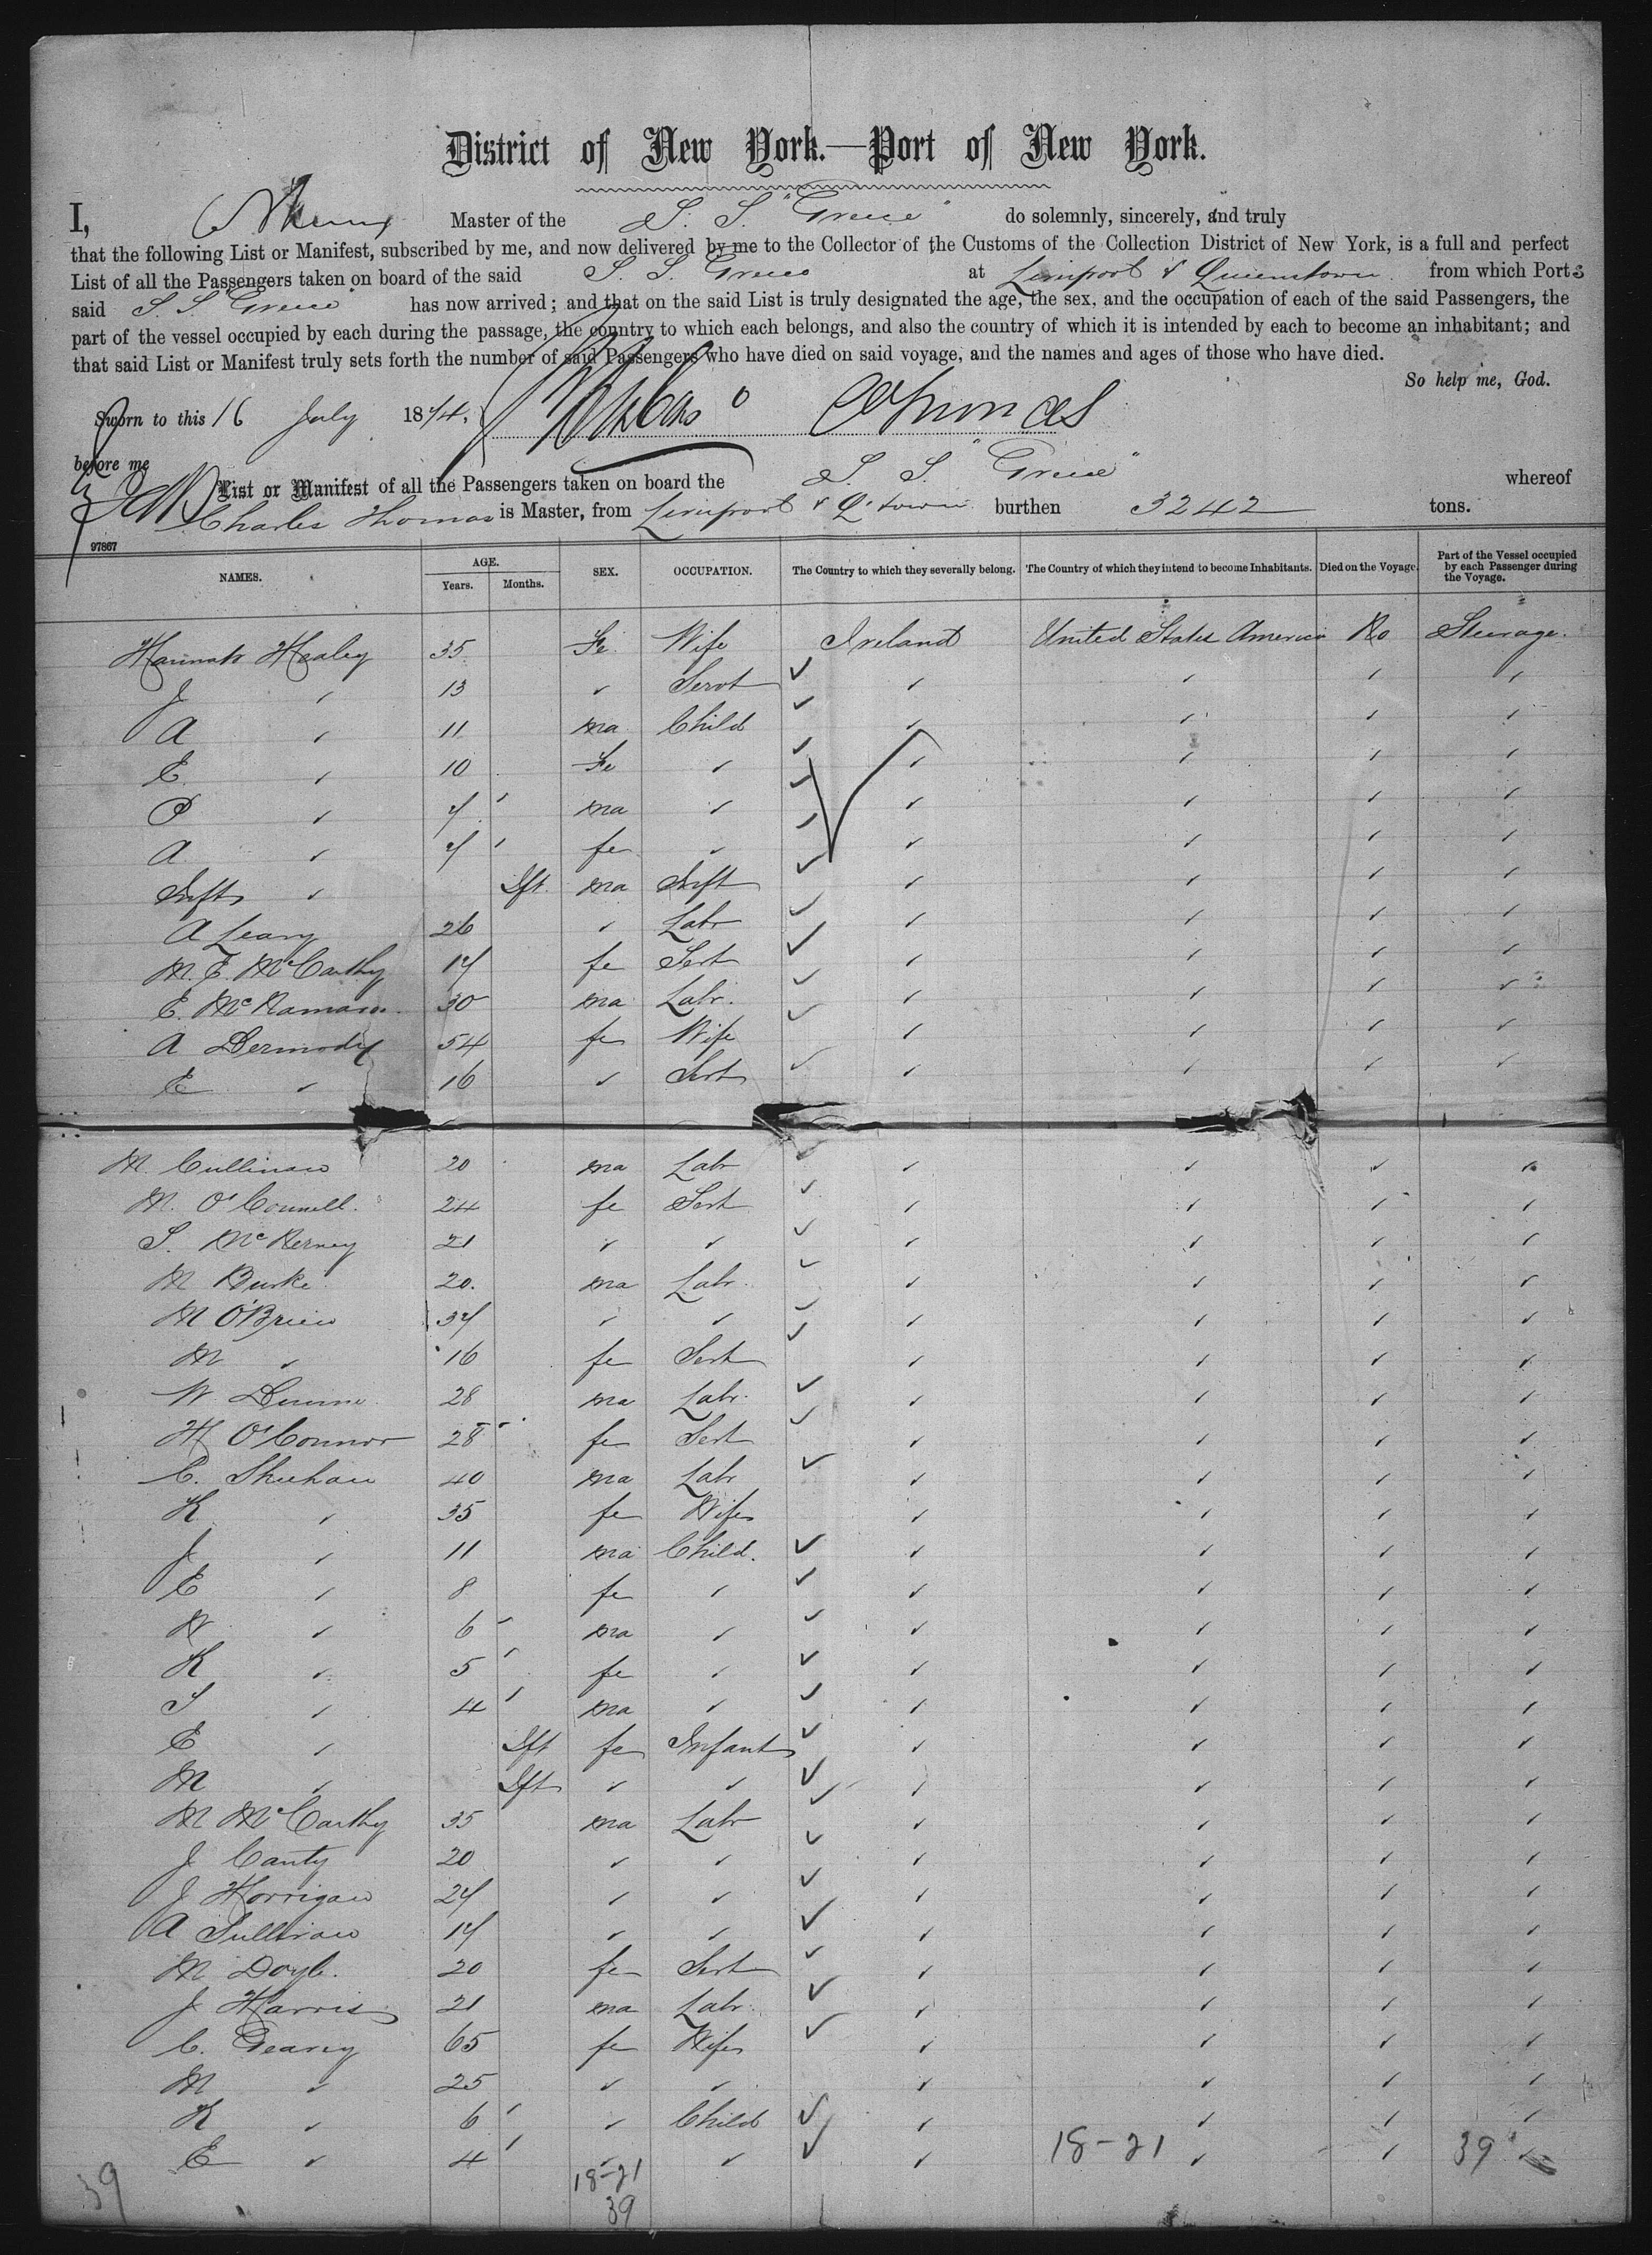 District of New York.—Port of New York.
I, Master of the S. S. "Greece" do solemnly, sincerely, and truly
that the following List or Manifest, subscribed by me, and now delivered by me to the Collector of the Customs of the Collection District of New York, is a full and perfect
List of all the Passengers taken on board of the said S. S. Greece at Liverpool & Queenstown from which Ports
said S. S. "Greece" has now arrived; and that on the said List is truly designated the age, the sex, and the occupation of each of the said Passengers, the
part of the vessel occupied by each during the passage, the country to which each belongs, and also the country of which it is intended by each to become an inhabitant; and
that said List or Manifest truly sets forth the number of said Passengers who have died on said voyage, and the names and ages of those who have died.
So help me, God.
Sworn to this 16 July 1874, Thomas
before me
List or Manifest of all the Passengers taken on board the S. S. "Greece" whereof
Charles Thomas is Master, from Liverpool & Q. town burthen 3242 tons.
97867
NAMES. AGE. Years. Months. SEX. OCCUPATION. The Country to which they severally belong. The Country of which they intend to become Inhabitants. Died on the Voyage. Part of the Vessel occupied by each Passenger during the Voyage.
Hannah Healey 35 Fe. Wife Ireland United States America No Steerage.
J " 13 " Servt " " " "
A " 11 ma Child " " " "
E " 10 Fe " " " " "
P " 7 ma " " " " "
A " 7 fe " " " " "
Inft " Ift. ma Inft " " " "
A Leary 26 " Labr " " " "
M. E. McCarthy 17 fe Sert " " " "
E. McNamara 30 ma Labr. " " " "
A Dermody 54 fe Wife " " " "
E " 16 " Sert " " " "
M. Cullinan 20 ma Labr " " " "
M. O'Connell. 24 fe Sert " " " "
S. McNerney 21 " " " " " "
M Burke 20. ma Labr. " " " "
M O'Brien 37 " " " " " "
M " 16 fe Sert " " " "
W. Dunne 28 ma Labr. " " " "
H O'Connor 28 fe Sert " " " "
C. Sheehan 40 ma Labr " " " "
K " 35 fe Wife " " " "
J " 11 ma Child. " " " "
E " 8 fe " " " " "
N " 6 ma " " " " "
K " 5 fe " " " " "
S " 4 ma " " " " "
E " Ift fe Infant " " " "
M " Ift " " " " " "
M McCarthy 35 ma Labr " " " "
J Canty 20 " " " " " "
J Horrigan 27 " " " " " "
A Sullivan 17 " " " " " "
M Doyle. 20 fe Sert " " " "
J Harris 21 ma Labr. " " " "
C. Geary 65 fe Wife " " " "
M " 25 " " " " " "
K " 6 " Child " " " "
E " 4 " " " " " "
18-21 39
39 18-21
39